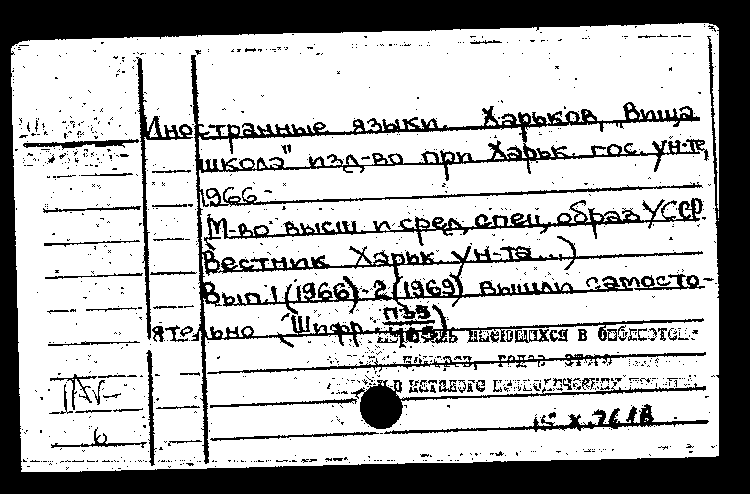 Иностранные языки. Харьков, „Вища
школа" изд-во при Харьк. гос. ун-те,
1966 -
(М-во высш и сред, спец, образ УССР.
Вестник Харьк. ун-та...)
Вып. 1 (1966)-2 (1969) вышли самосто-
ятельно (Шифр П35)
имеющихся в библиотеке
номеров, годов этого
в каталоге периодических
15.X.76
6